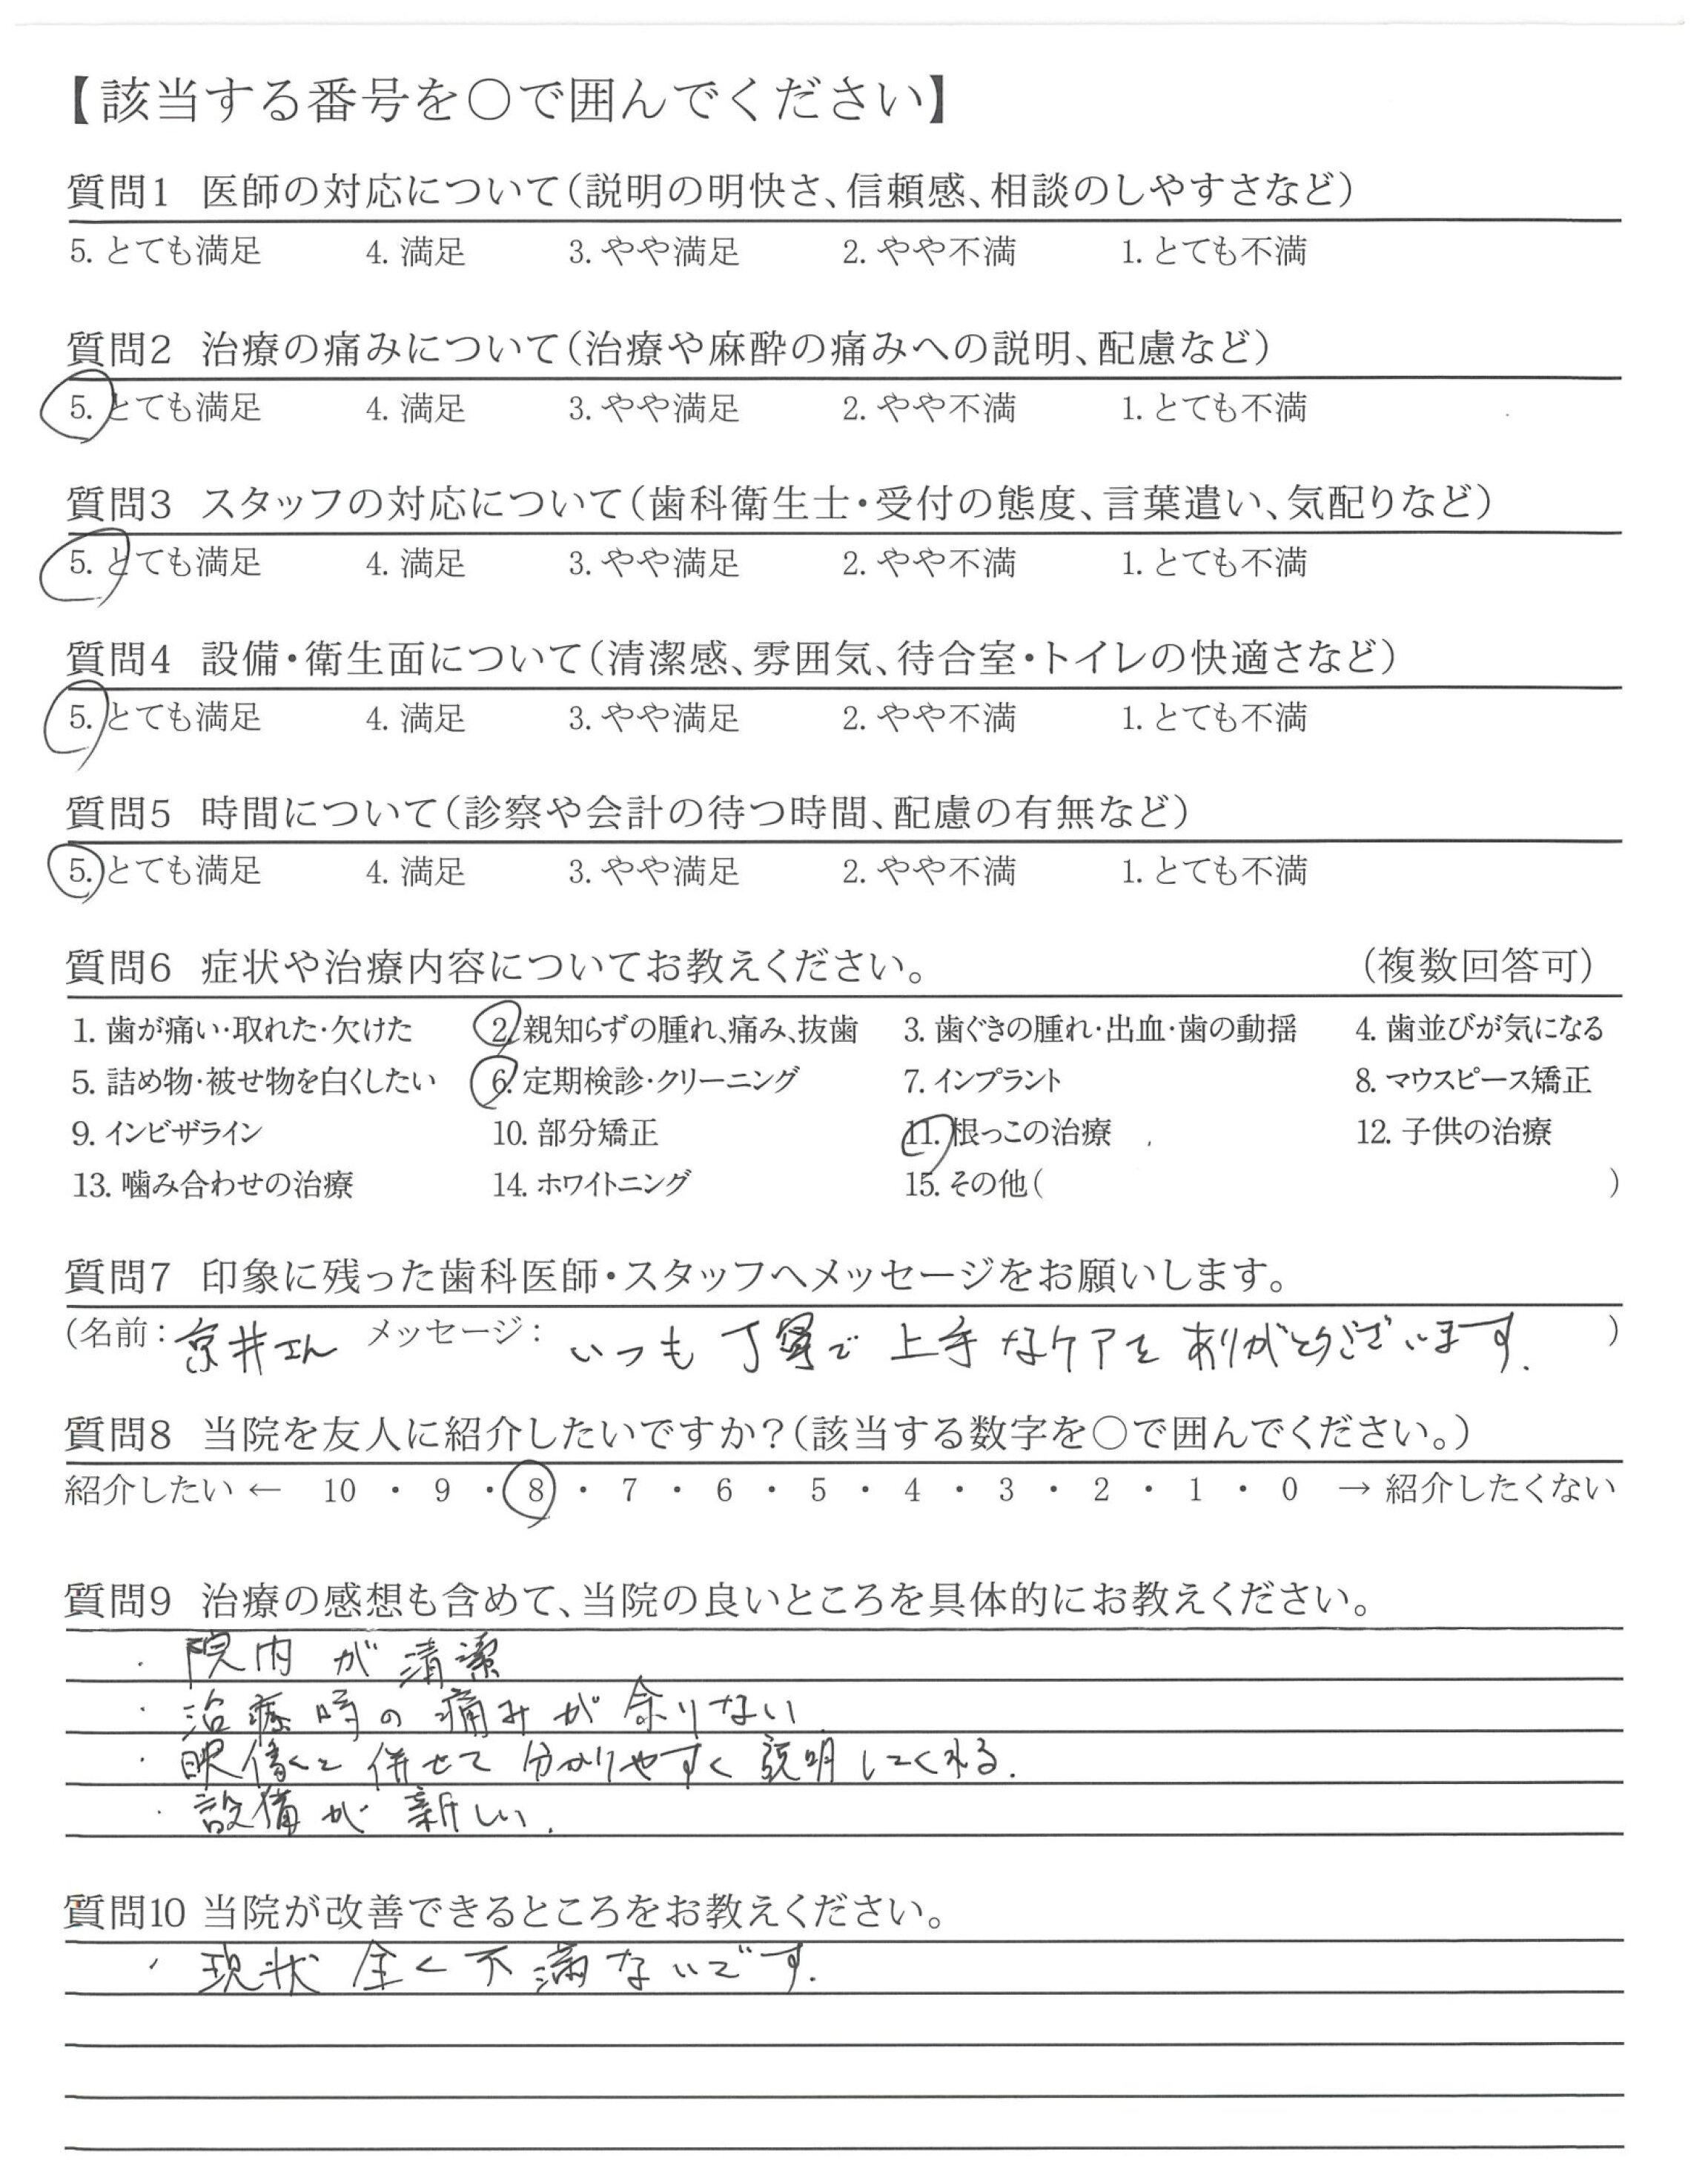 【該当する番号を○で囲んでください】
質問1 医師の対応について(説明の明快さ、信頼感、相談のしやすさなど)
5. とても満足 4. 満足 3. やや満足 2. やや不満 1. とても不満
質問2 治療の痛みについて(治療や麻酔の痛みへの説明、配慮など)
5. とても満足 4. 満足 3. やや満足 2. やや不満 1. とても不満
質問3 スタッフの対応について(歯科衛生士・受付の態度、言葉遣い、気配りなど)
5. とても満足 4. 満足 3. やや満足 2. やや不満 1. とても不満
質問4 設備・衛生面について(清潔感、雰囲気、待合室・トイレの快適さなど)
5. とても満足 4. 満足 3. やや満足 2. やや不満 1. とても不満
質問5 時間について(診察や会計の待つ時間、配慮の有無など)
5. とても満足 4. 満足 3. やや満足 2. やや不満 1. とても不満
質問6 症状や治療内容についてお教えください。 (複数回答可)
1. 歯が痛い・取れた・欠けた 2. 親知らずの腫れ、痛み、抜歯 3. 歯ぐきの腫れ・出血・歯の動揺 4. 歯並びが気になる
5. 詰め物・被せ物を白くしたい 6. 定期検診・クリーニング 7. インプラント 8. マウスピース矯正
9. インビザライン 10. 部分矯正 11. 根っこの治療 12. 子供の治療
13. 噛み合わせの治療 14. ホワイトニング 15. その他( )
質問7 印象に残った歯科医師・スタッフへメッセージをお願いします。
(名前: 京井さん メッセージ: いつも丁寧で上手なケアをありがとうございます. )
質問8 当院を友人に紹介したいですか?(該当する数字を○で囲んでください。)
紹介したい ← 10 ・ 9 ・ 8 ・ 7 ・ 6 ・ 5 ・ 4 ・ 3 ・ 2 ・ 1 ・ 0 → 紹介したくない
質問9 治療の感想も含めて、当院の良いところを具体的にお教えください。
・院内が清潔
・治療時の痛みが余りない
・映像と併せて分かりやすく説明してくれる.
・設備が新しい.
質問10 当院が改善できるところをお教えください。
・現状全く不満ないです.